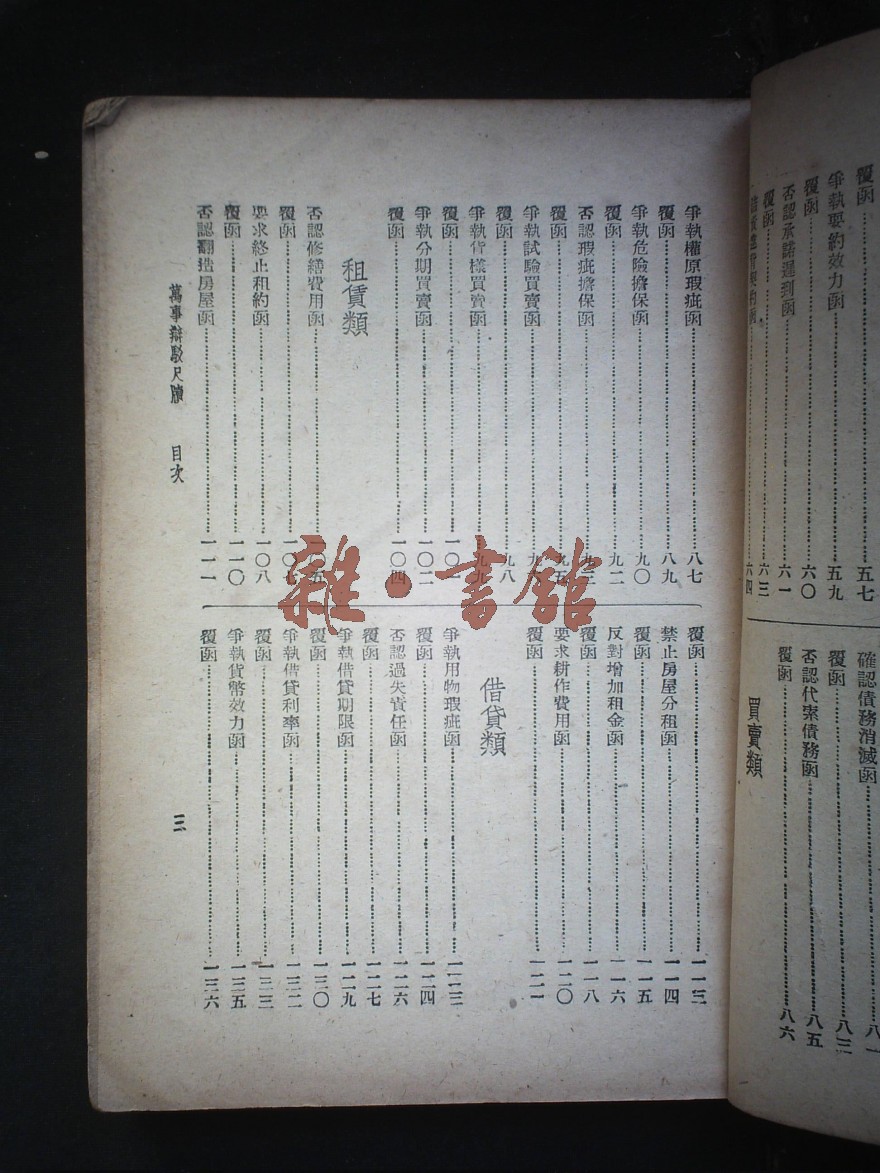 覆函……五七
爭執要約效力函……五九
覆函……六〇
否認承諾遲到函……六一
覆函……六三
契約函……六四
確認債務消滅函……八
覆函……八三
否認代索債務函……八五
覆函……八六
買賣類
爭執權原瑕疵函……八七
覆函……八九
爭執危險擔保函……九〇
覆函……九二
否認瑕疵擔保函……九三
覆函……九五
爭執試驗買賣函……九
覆函……九八
爭執貨樣買賣函……九九
覆函……一〇一
爭執分期買賣函……一〇二
覆函……一〇四
租賃類
否認修繕費用函……一〇五
覆函……一〇七
要求終止租約函……一〇八
覆函……一一〇
否認翻造房屋函……一一一
覆函……一一三
禁止房屋分租函……一一四
覆函……一一五
反對增加租金函……一一六
覆函……一一八
要求耕作費用函……一二〇
覆函……一二一
借貸類
爭執用物瑕疵函……一二三
覆函……一二四
否認過失責任函……一二六
覆函……一二七
爭執借貸期限函……一二九
覆函……一三〇
爭執借貸利率函……一三二
覆函……一三三
爭執貨幣效力函……一三五
覆函……一三六
萬事辯駁尺牘 目次 三
雜·書館